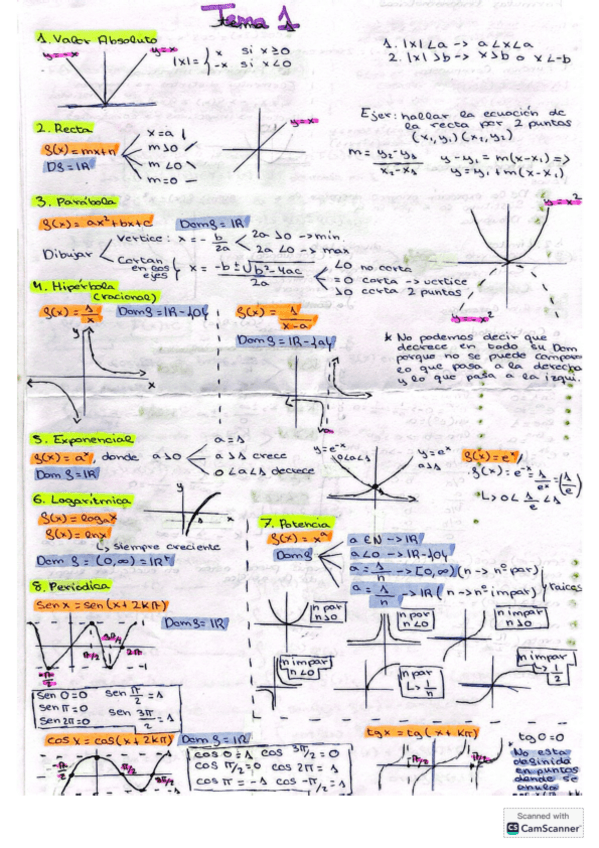 Tema 1
1. Valor Absoluto
y=-x
y=x
|x|= { x si x≥0
-x si x<0
1. |x|<a -> a<x<a
2. |x|>b -> x>b o x<-b
2. Recta
f(x)=mx+n
Df=IR
x=a |
m>0
m<0
m=0 -
y=x
Ejer: hallar la ecuación de
la recta por 2 puntos
(x₁,y₁)(x₂,y₂)
m= y₂-y₁ / x₂-x₁
y-y₁=m(x-x₁)=>
y=y₁+m(x-x₁)
3. Parábola
f(x)=ax²+bx+c Domf=IR
Dibujar
Vertice: x=- b/2a
2a>0 -> min
2a<0 -> max
Cortan
en los
ejes
x= -b±√b²-4ac / 2a
<0 no corta
=0 corta -> vertice
>0 corta 2 puntos
y=x²
y=-x²
4. Hipérbola
(racional)
f(x)= 1/x Domf=IR-{0}
y
x
f(x)= 1/x-a
Domf=IR-{a}
* No podemos decir que
decrece en todo su Dom
porque no se puede comparar
lo que pasa a la derecha
y lo que pasa a la izqui.
5. Exponencial
f(x)=aˣ, donde a>0
Domf=IR
a=1
a>1 crece
0<a<1 decrece
y=e⁻ˣ
0<a<1
y=eˣ
a>1
f(x)=eˣ
f(x)=e⁻ˣ= 1/eˣ =(1/e)
L> 0< 1/e <1
6. Logarítmica
f(x)=logₐx
f(x)=lnx
L> siempre creciente
Dom f=(0,∞)=IR⁺
y
x
1
7. Potencia
f(x)=xᵃ
Domf
a∈N -> IR
a<0 -> IR-{0}
a= 1/n -> [0,∞)(n->nº par)
a= 1/n -> IR (n->nº impar)
raices
n par
n>0
n par
n<0
n impar
n>0
n impar
n<0
n par
L> 1/n
n impar
L> 1/2
8. Periódica
sen x=sen(x+2kπ)
Domf=IR
1
-1
-π/2
π/2
3π/2
2π
sen 0=0 sen π/2=1
sen π=0 sen 3π/2=1
sen 2π=0
cos x=cos(x+2kπ) Domf=IR
-π/2
π/2
3π/2
cos 0=1 cos 3π/2=0
cos π/2=0 cos 2π=1
cos π=-1 cos -π/2=1
tg x=tg(x+kπ)
tg 0=0
* No esta
definida
en puntos
donde se
anula
Scanned with
CS CamScanner